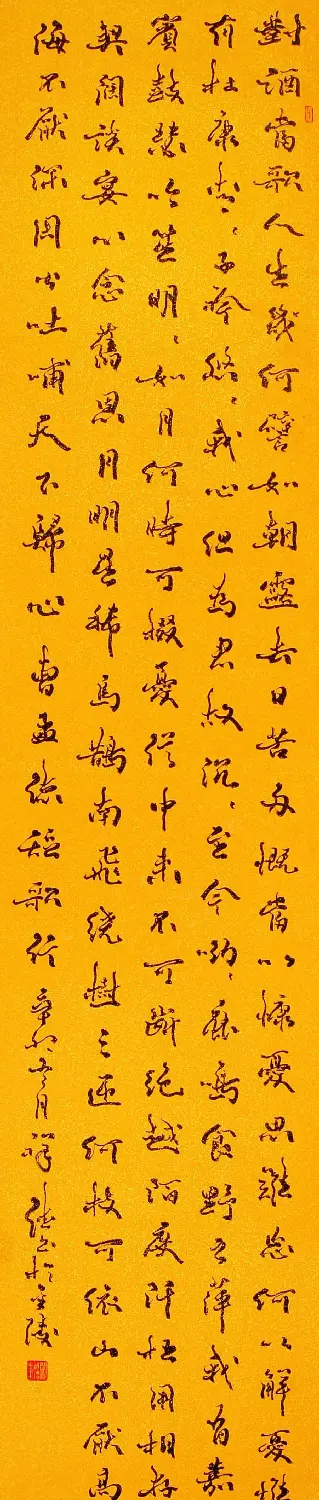 對酒當歌人生幾何譬如朝露去日苦多慨當以慷憂思難忘何以解憂惟
有杜康青々子衿悠々我心但為君故沉々至今呦々鹿鳴食野之萍我有嘉
賓鼓瑟吹笙明々如月何時可掇憂從中來不可斷絕越陌度阡枉用相存
契闊談宴心念舊恩月明星稀烏鵲南飛繞樹三匝何枝可依山不厭高
海不厭深周公吐哺天下歸心曹孟德短歌行辛卯冬月祥書於金陵